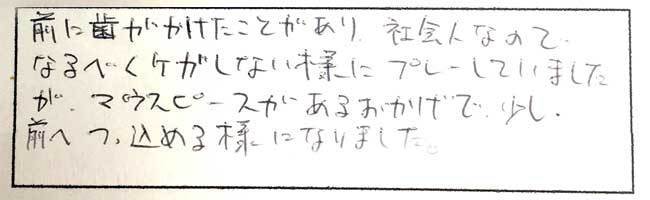 前に歯がかけたことがあり、社会人なので、
なるべくケガしない様に プレーしていました
が、マウスピースがあるおかげで、少し、
前へ つっ込める様になりました。